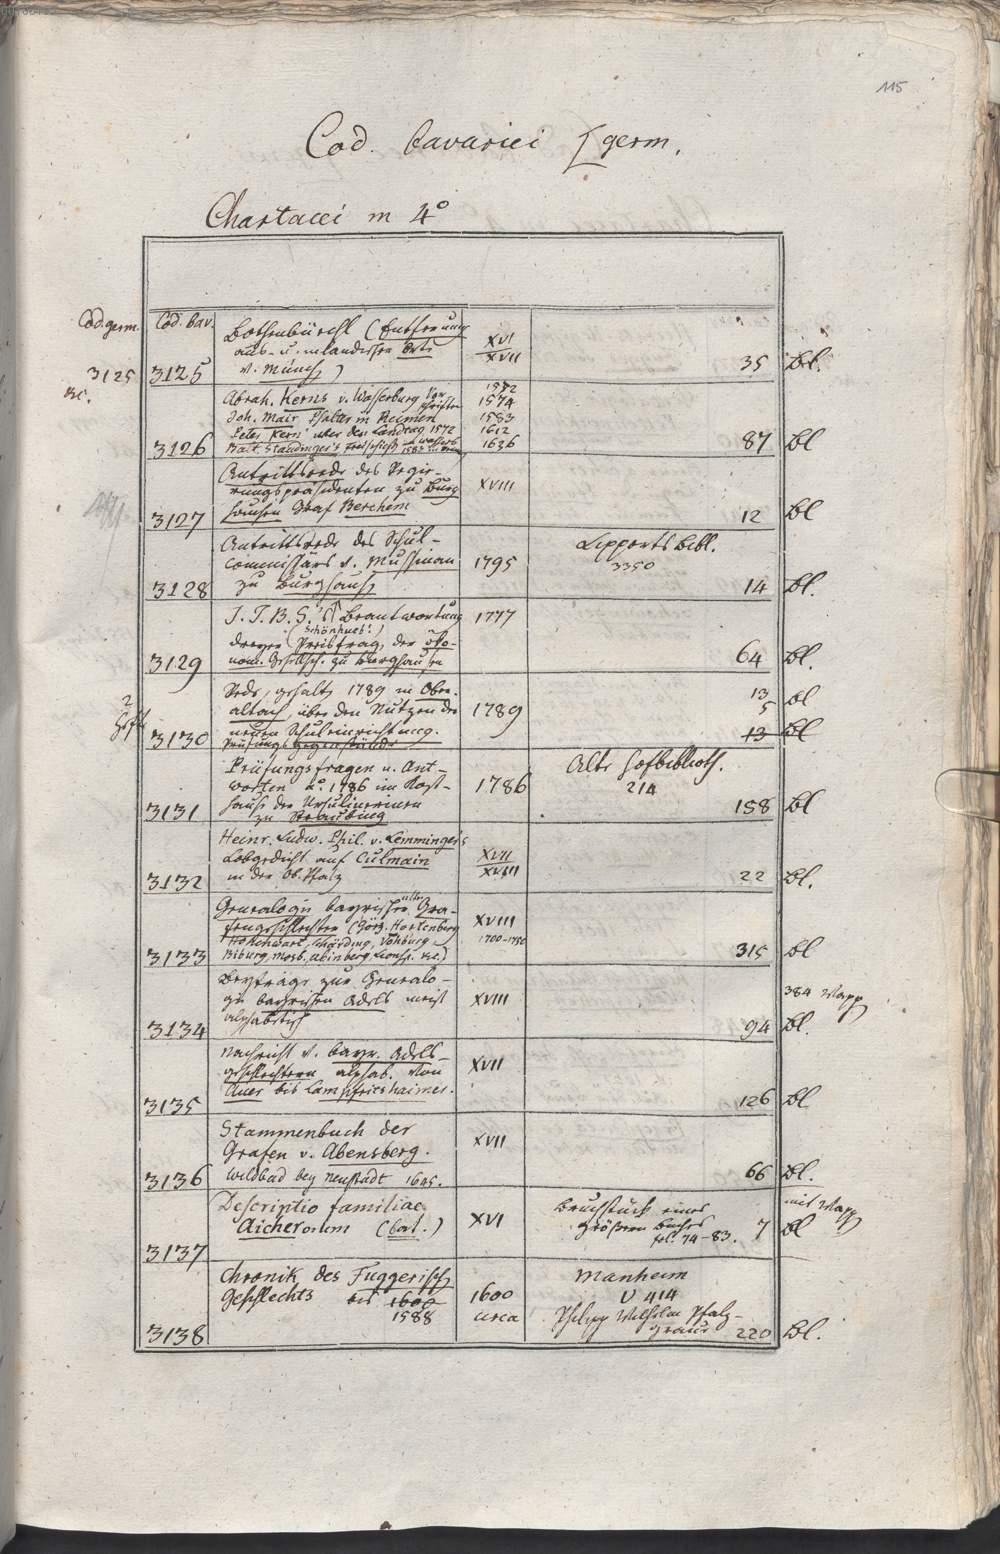 115
Cod. bavarici [germ.
Chartacei in 4°
Cod. germ.
Cod. bav.
3125
3125
Bothenbüechl (Entfernung
aus- u. inländischer Orte
v. Münch)
XVI
XVII
35 Bl.
3126
Abrah. Kerns v. Wasserburg
Joh. Mair Psalter in Reimen
Peter Kern über den Landtag 1572
1572
1574
1583
1612
1626
87 Bl
3127
Antrittsrede des Regie-
rungspräsidenten zu Burg
hausen Graf Berchem
XVIII
12 Bl
3128
Antrittsrede des Schul-
commissärs v. Mussinan
zu Burghausen
1795
Lipperts Bibl.
3350
14 Bl.
3129
J. T. B. S. Beantwortung
(Schönhueb?)
dreyer Preisfrag. der öko-
nom. Gesellsch. zu Burghausen
1777
64 Bl.
2
Hefte
3130
Rede, gehalten 1789 in Ober-
altaich, über den Nutzen der
neuen Schuleinrichtung.
Prüfungsgegenstände
1789
13 Bl
5
13 Bl
3131
Prüfungsfragen u. Ant-
worten a°. 1786 im Kost-
hause der Ursulinerinen
zu Straubing
1786
Alte Hofbiblioth.
214
158 Bl
3132
Heinr. Ludw. Phil. v. Lemmingers
Lobgedicht auf Culmain
in der Ob. Pfalz
XVII
XVIII
22 Bl.
3133
Genealogie bayrischer alter Gra-
fengeschlechter (Görz. Hortenberg
Hohenwart, Schärding, Vohburg
Biburg, Mosb, Abinberg,
XVIII
1700-1750
315 Bl
3134
Beyträge zur Genealo-
gie bayrischen Adels meist
alphabetisch
XVIII
384 Wapp
94 Bl.
3135
Nachricht v. bayr. Adels-
geschlechtern alphab. von
Auer bis Lampfritshaimer.
XVII
126 Bl
3136
Stammenbuch der
Grafen v. Abensberg.
Wildbad bey Neustadt 1645.
XVII
66 Bl.
3137
Descriptio familiae
Aicherorum (bat.)
XVI
Bruchstück eines
größern Buches
fol. 74-83.
7 Bl
mit Wapp
3138
Chronik des Fuggerisch
Geschlechts bis 1600
1588
1600
circa
Manheim
U 414
Philipp Wilhelm Pfalz-
grave
220 Bl.